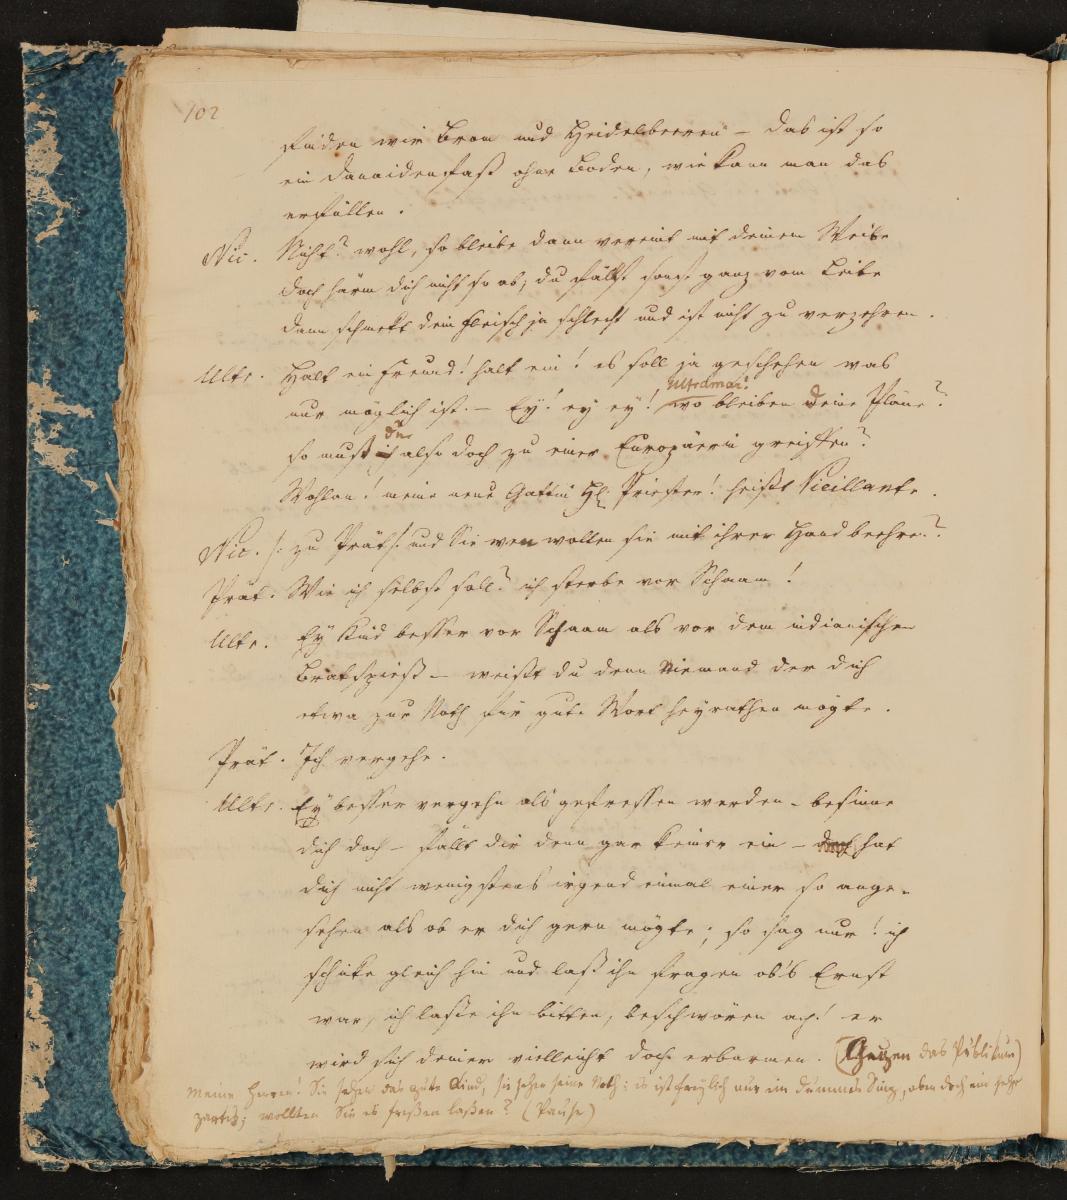 102
finden wie Brom und Heidelbeeren – das ist so
ein Danaidenfaß ohne Boden, wie kann man das
erfüllen.
Nic. Nicht? wohl, so bleibe dann vereint mit deinem Weibe
doch härm dich nicht so ab, du fällst sonst ganz vom Leibe
dann schmekt dein Fleisch ja schlecht und ist nicht zu verzehren.
Ultr. Halt ein Freund! halt ein! es soll ja geschehen was
Ultrdmar!
nur möglich ist. – Ey! ey ey! wo bleiben deine Pläne?
du
so must ich also doch zu einer Europäerin greiffen?
Wohlan! meine neue Gattin H. Priester! heißt Vieillante.
Nic. /: zu Prät/: und Sie wen wollen sie mit ihrer Hand beehren?
Prät. Wie ich selbst soll? ich sterbe vor Schaam!
Ultr. Ey Kind besser vor Schaam als vor dem indianischen
Bratspieß – weißt du denn Niemand der dich
etwa zur Noth für gute Wort heyrathen mögte.
Prät. Ich vergehe.
Ultr. Ey besser vergehn als gefressen werden – besinne
dich doch – fällt dir denn gar keiner ein – doch hat
dich nicht wenigstens irgend einmal einer so ange-
sehen als ob er dich gern mögte; so sag nur! ich
schike gleich hin und laß ihn fragen ob's Ernst
war, ich lasse ihn bitten, beschwören ach! er
wird sich deiner vielleicht doch erbarmen. (Gegen das Publikum)
Meine Herren! Sie sehen das gute Kind, sie sehen seine Noth; es ist freylich nur ein dummes Ding, aber doch ein sehr
zartes; wollten Sie es freßen laßen? (Pause)